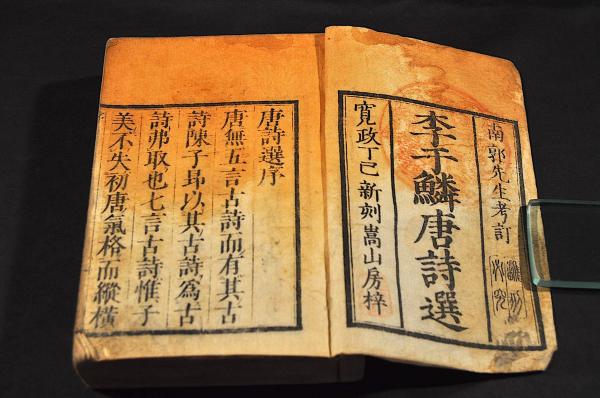 南郭先生考訂
李于鱗唐詩選
寬政丁巳新刻嵩山房梓
唐詩選序
唐無五言古詩而有其古
詩陳子昂以其古詩爲古
詩弗取也七言古詩惟子
美不失初唐氣格而縱橫